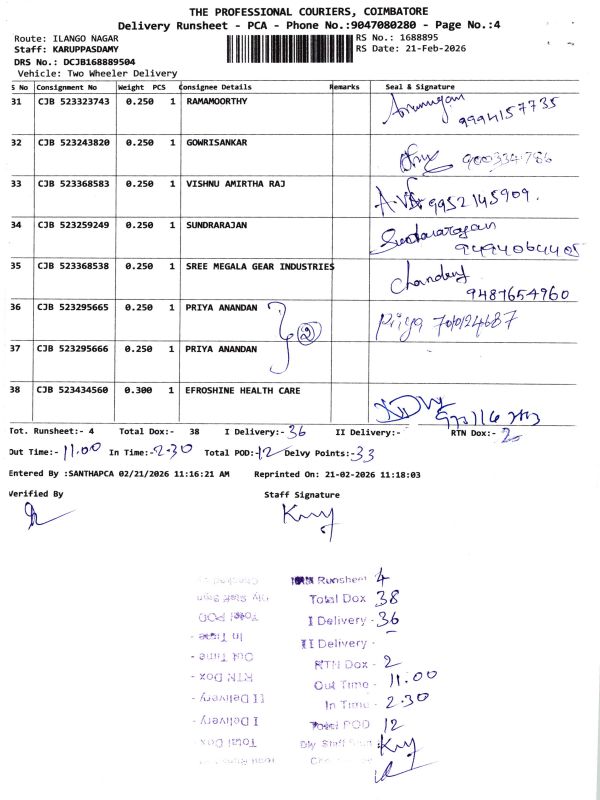 THE PROFESSIONAL COURIERS, COIMBATORE
Delivery Runsheet - PCA - Phone No.:9047080280 - Page No.:4
Route: ILANGO NAGAR RS No.: 1688895
Staff: KARUPPASDAMY RS Date: 21-Feb-2026
DRS No.: DCJB168889504
Vehicle: Two Wheeler Delivery
S No Consignment No Weight PCS Consignee Details Remarks Seal & Signature
31 CJB 523323743 0.250 1 RAMAMOORTHY Arumugam
9994157735
32 CJB 523243820 0.250 1 GOWRISANKAR
33 CJB 523368583 0.250 1 VISHNU AMIRTHA RAJ 9952145909.
34 CJB 523259249 0.250 1 SUNDRARAJAN Sundararajan
35 CJB 523368538 0.250 1 SREE MEGALA GEAR INDUSTRIES
9487654960
36 CJB 523295665 0.250 1 PRIYA ANANDAN Priya
2
37 CJB 523295666 0.250 1 PRIYA ANANDAN
38 CJB 523434560 0.300 1 EFROSHINE HEALTH CARE
Tot. Runsheet:- 4 Total Dox:- 38 I Delivery:- 36 II Delivery:- RTN Dox:- 2
Out Time:- 11.00 In Time:- 2.30 Total POD:- 12 Delvy Points:- 33
Entered By :SANTHAPCA 02/21/2026 11:16:21 AM Reprinted On: 21-02-2026 11:18:03
Verified By Staff Signature
Runsheet 4
Total Dox 38
I Delivery - 36
II Delivery - –
RTN Dox - 2
Out Time - 11.00
In Time - 2.30
Total POD 12
Dly Staff Sign